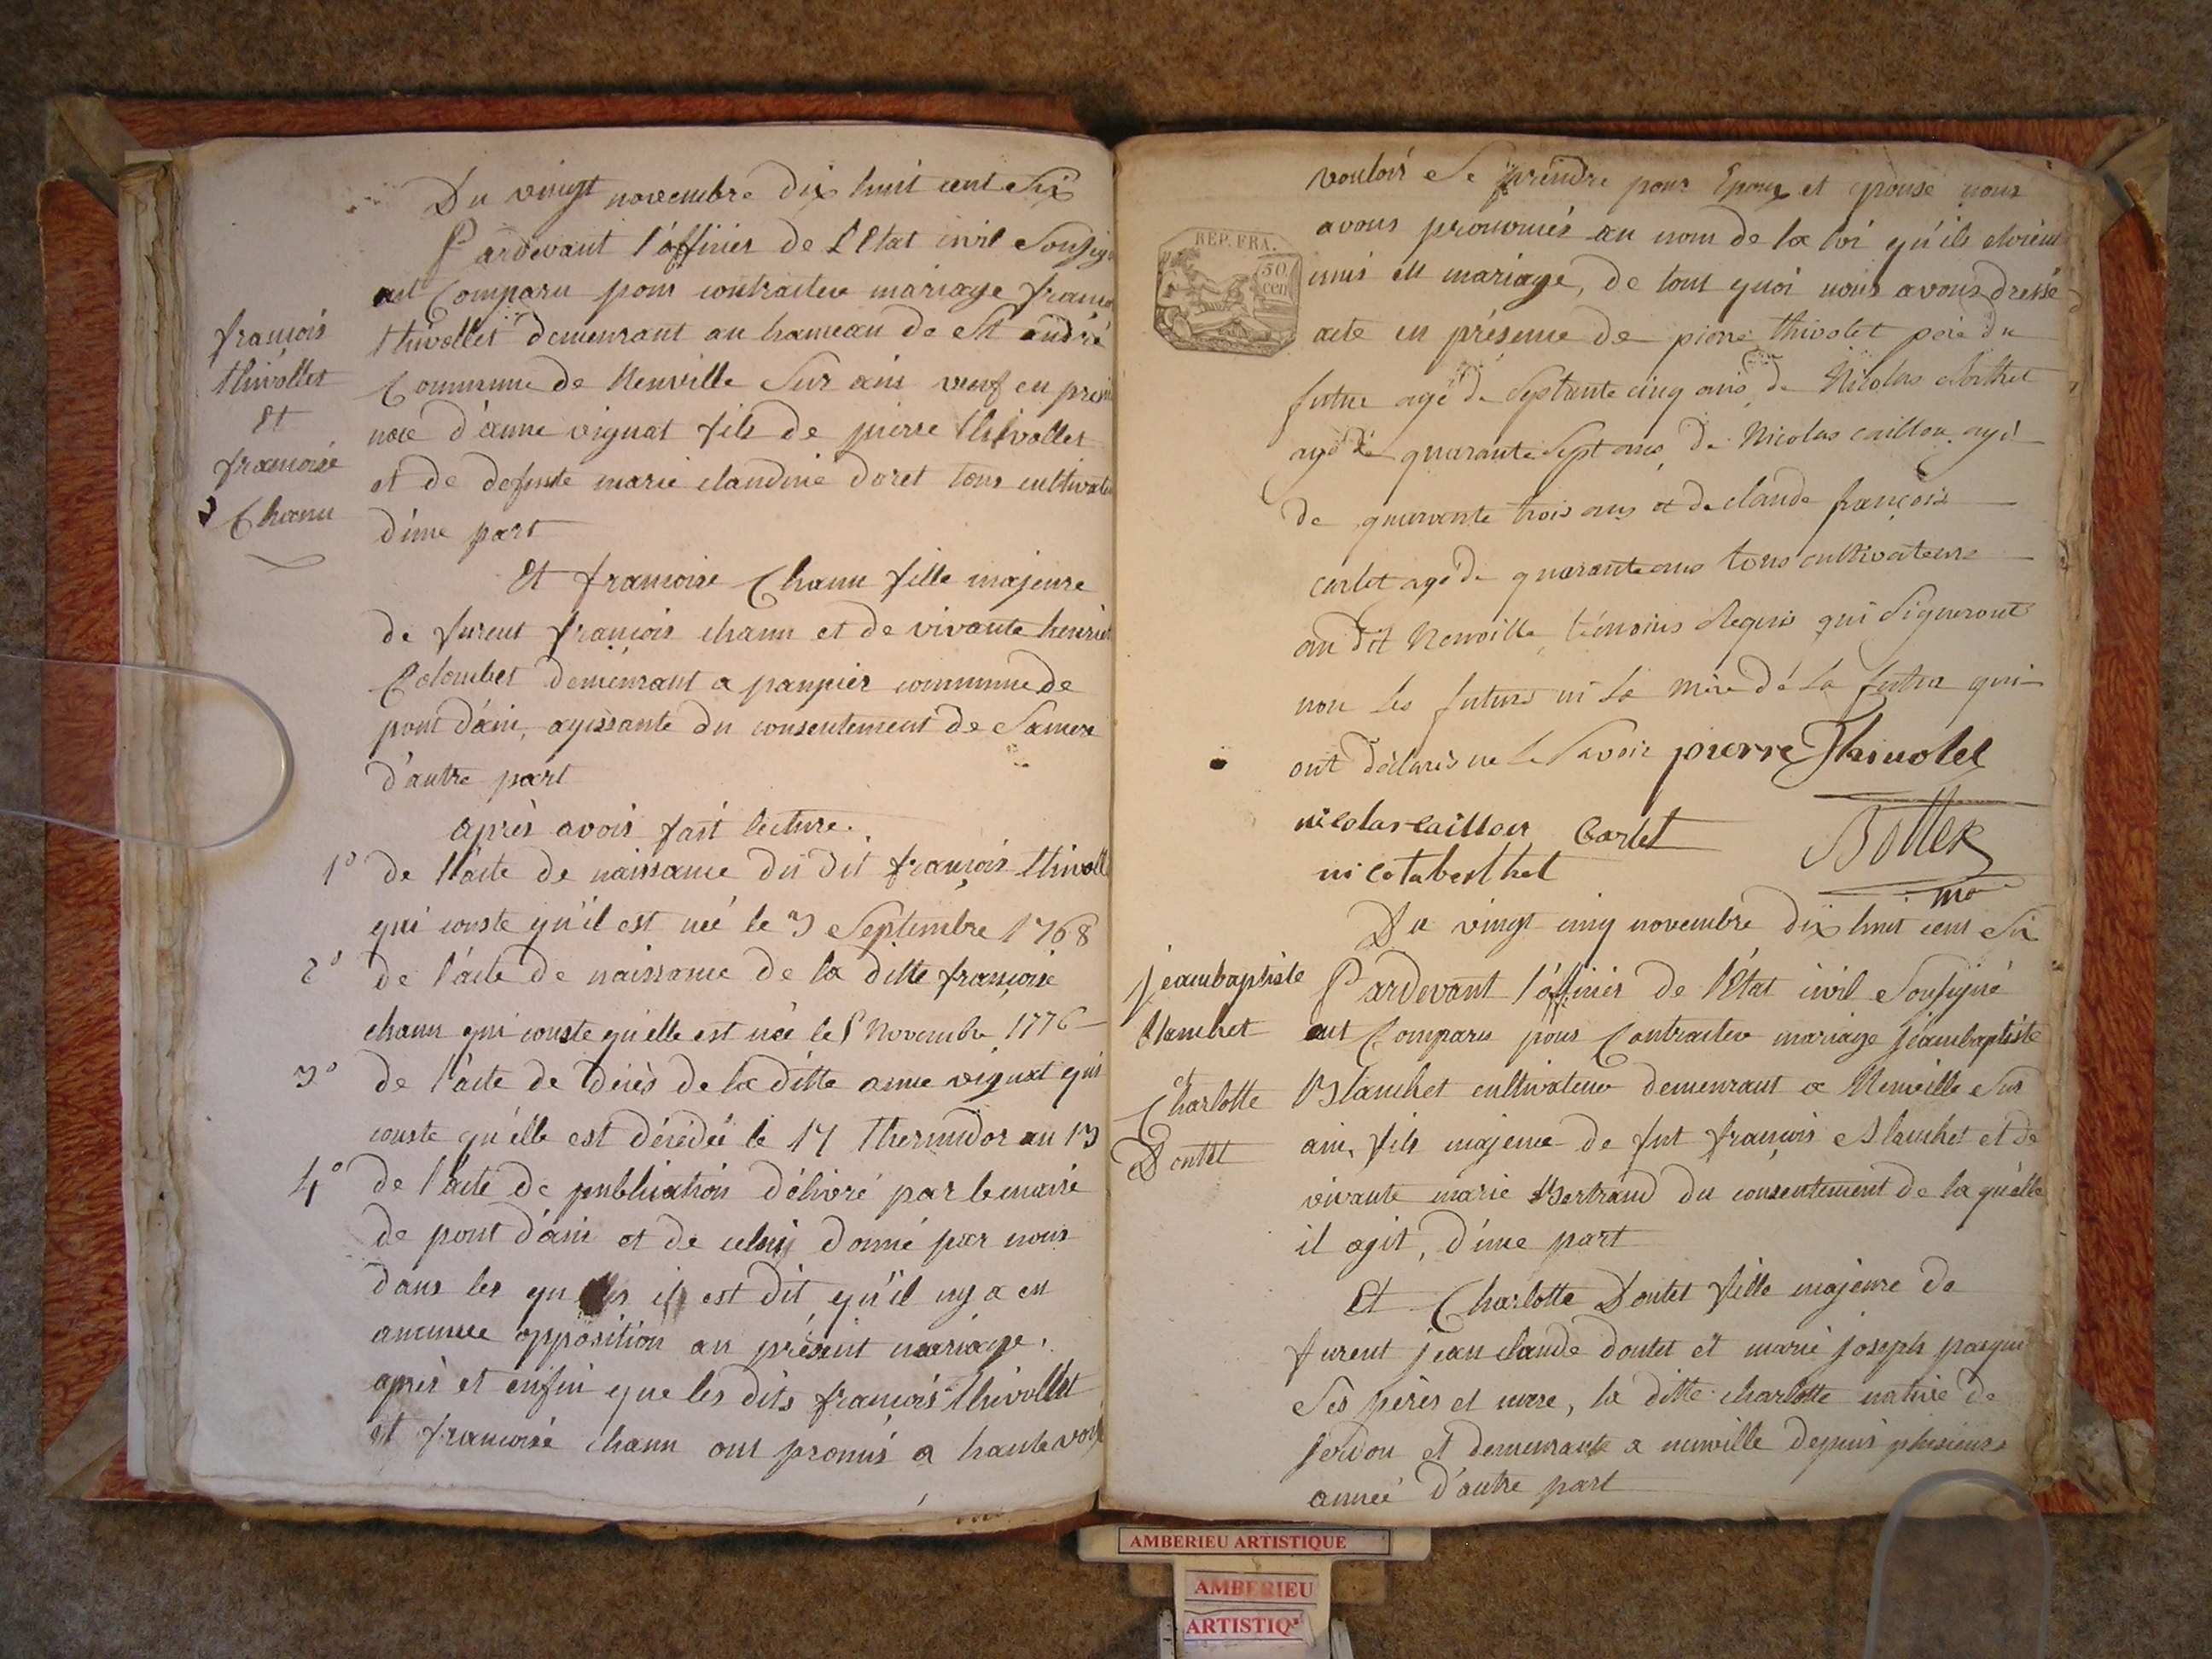 Du vingt novembre dix huit cent Six
Pardevant l'officier de l'Etat civil Soussig
ont Comparu pour contracter mariage franço
thivollet demeurant au hameau de St andré
Commune de Neuville Sur ain veuf en prem
noce d'anne vignat fils de pierre thivollet
et de defunte marie claudine doret tous cultivate
d'une part
françois
thivollet
Et
françoise
Chanu
Et françoise Chanu fille majeure
de furent françois chanu et de vivante henriet
Colombet demeurant a pampier commune de
pont d'ain, agissante du consentement de Samere
d'autre part
après avoir fait lecture.
1° de l'acte de naissance du dit françois thivoll
qui conste qu'il est né le 3 Septembre 1768
2° de l'acte de naissance de la ditte françoise
chanu qui conste qu'elle est née le Novembre 1776
3° de l'acte de décès de la ditte anne vignat qui
conste qu'elle est décédée le 17 thermidor an 13
4° de l'acte de publication délivré par le maire
de pont d'ain et de celuy donné par nous
dans les quels il est dit qu'il ny a eu
aucune opposition au présent mariage.
après et enfin que les dits françois thivollet
et françoise chanu ont promis a haute voix
REP. FRA.
50
cen
vouloir Se prendre pour Epoux et epouse nous
avons prononcés au nom de la loi qu'ils etoient
unis en mariage, de tout quoi nous avons dressé
acte en présence de pierre thivolet pere du
futur agé de Septante cinq ans, de Nicolas berthet
agé de quarante Sept ans, de Nicolas caillou agé
de quarante trois ans et de claude françois
carlet agé de quarante ans tous cultivateurs
au dit Neuville, témoins Requis qui Signeront
non les futurs ni la mère de la future qui
ont déclarés ne le Savoir pierre Thivolet
nicolas caillou Carlet
nicolaberthet
Bottex
Du vingt cinq novembre dix huit cent Six
jeanbaptiste
blanchet
et
Charlotte
Doutet
Pardevant l'officier de l'Etat civil Soussigné
ont Comparu pour Contracter mariage jeanbaptiste
Blanchet cultivateur demeurant a Neuville Sur
ain, fils majeur de fut françois Blanchet et de
vivante marie Bertrand du consentement de la quelle
il agit, d'une part
Et Charlotte Doutet fille majeure de
furent jean claude doutet et marie joseph
Ses pères et mere, la ditte charlotte native de
demeurante a neuville depuis plusieurs
année d'autre part
AMBERIEU ARTISTIQUE
AMBERIEU
ARTISTIQ